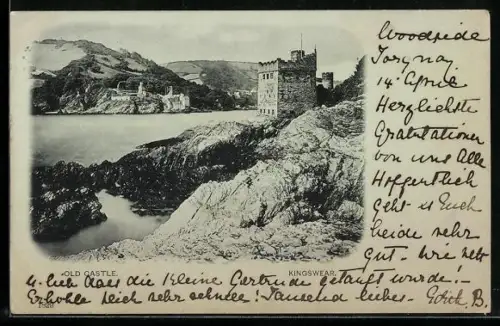 Woodside
Torquay
14 April
Herzlichste
Gratulationen
von uns Alle
Hoffentlich
geht es Euch
beide sehr
gut. - Wie nett
OLD CASTLE.
KINGSWEAR.
u. lieb dass die Kleine Gertrude getauft wurde! -
Erhohle Dich sehr schnell! Tausend liebes - Edith. B.